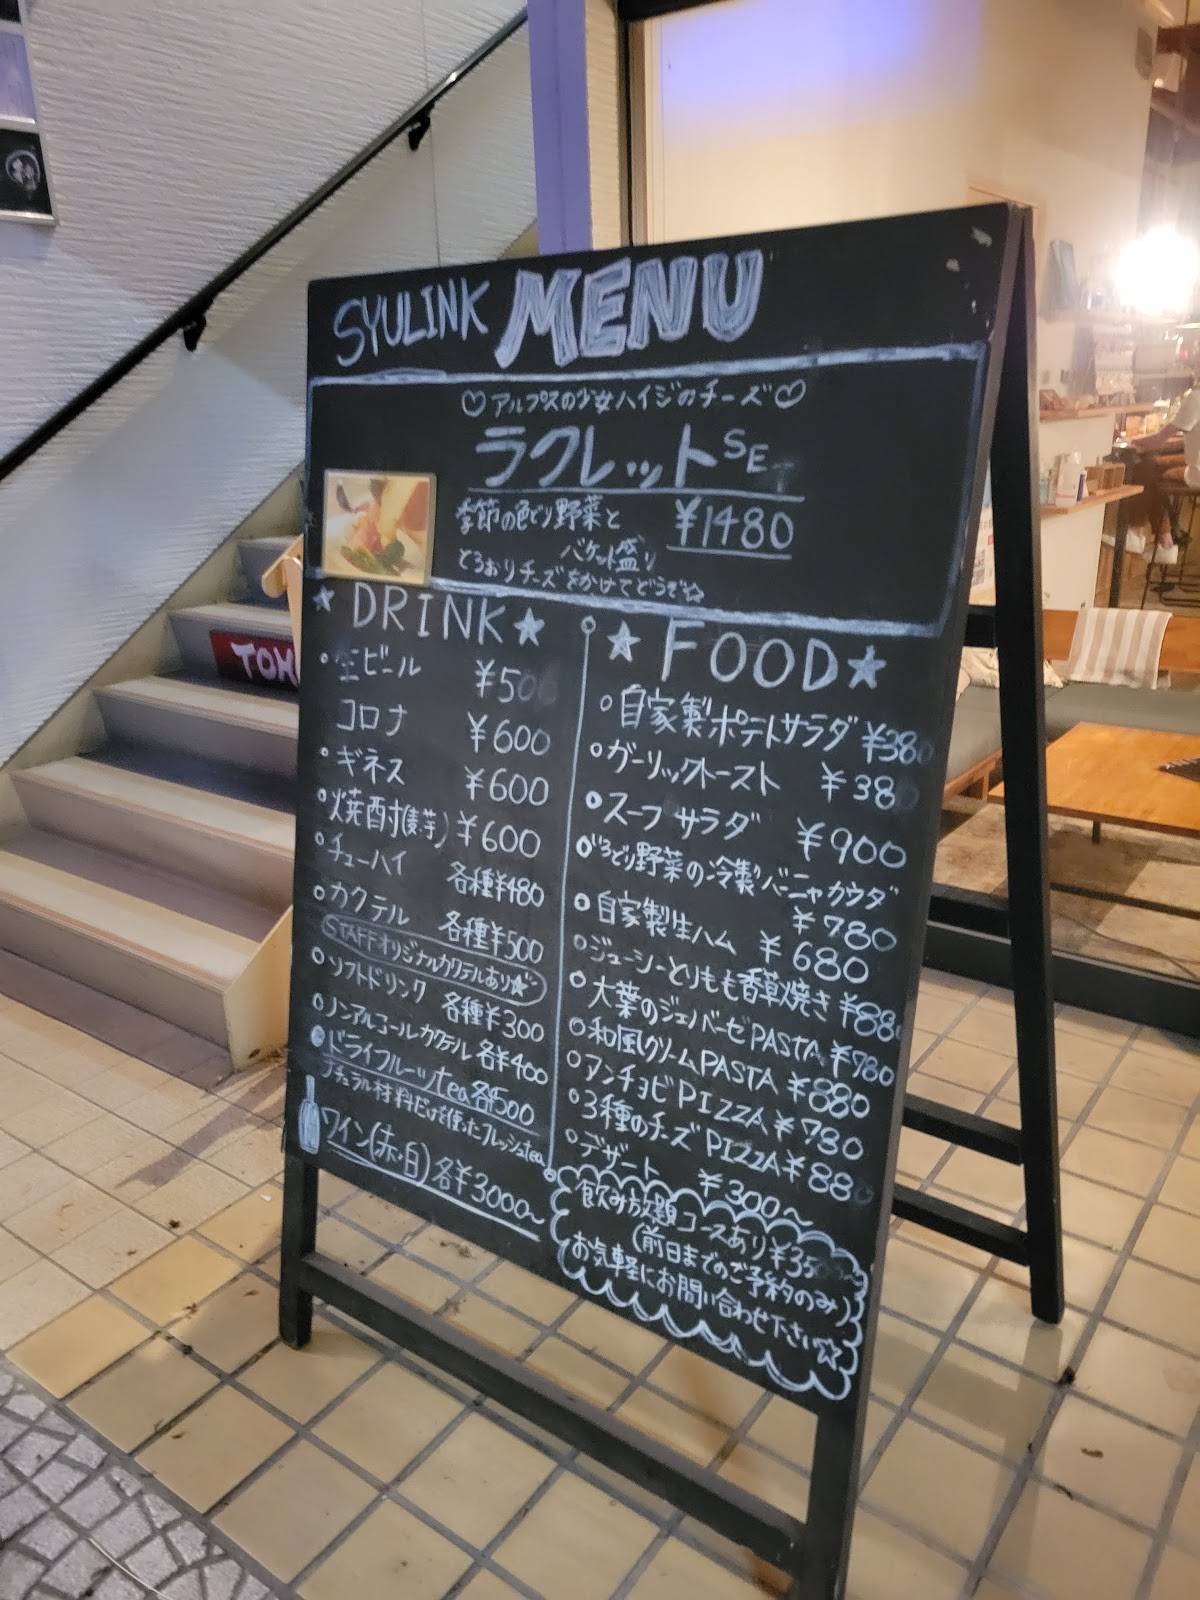 SYULINK MENU
♡アルプスの少女ハイジのチーズ♡
ラクレット SET
季節の色どり野菜と ¥1480
バケット盛り
とろおりチーズをかけてどうぞ☆
★DRINK★
・生ビール ¥500
コロナ ¥600
・ギネス ¥600
○焼酎(麦・芋) ¥600
○チューハイ 各種¥480
○カクテル 各種¥500
STAFFオリジナルカクテルあり★
○ソフトドリンク 各種¥300
○ノンアルコールカクテル 各¥400
○ドライフルーツtea 各500
ナチュラル材料だけを使ったフレッシュtea
ワイン(赤・白) 各¥3000~
★FOOD★
○自家製ポテトサラダ ¥380
○ガーリックトースト ¥380
○スープサラダ ¥900
○いろどり野菜の冷製バーニャカウダ
¥780
○自家製生ハム ¥680
○ジューシーとりもも香草焼き ¥880
○大葉のジェノバーゼPASTA ¥780
○和風クリームPASTA ¥880
○アンチョビPIZZA ¥780
○3種のチーズPIZZA ¥880
○デザート ¥300~
飲み放題コースあり ¥3500~
(前日までのご予約のみ)
お気軽にお問い合わせ下さい☆